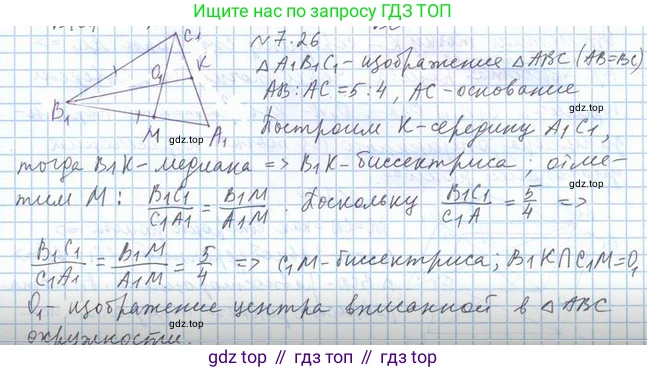 Ищите нас по запросу ГДЗ ТОП
C₁
O₁
K
B₁
M
A₁
№7.26
△A₁B₁C₁ - изображение △ABC (AB=BC)
AB : AC = 5:4, AC - основание
Построим K - середину A₁C₁,
тогда B₁K - медиана => B₁K - биссектриса; отме-
тим M: B₁C₁/C₁A₁ = B₁M/A₁M. Поскольку B₁C₁/C₁A = 5/4 =>
B₁C₁/C₁A₁ = B₁M/A₁M = 5/4 => C₁M - биссектриса; B₁K∩C₁M=O₁
O₁ - изображение центра вписанной в △ABC
окружности.
gdz.top
gdz.top
gdz.top
gdz.top
gdz.top
gdz.top // гдз.топ // gdz.top // гдз.топ